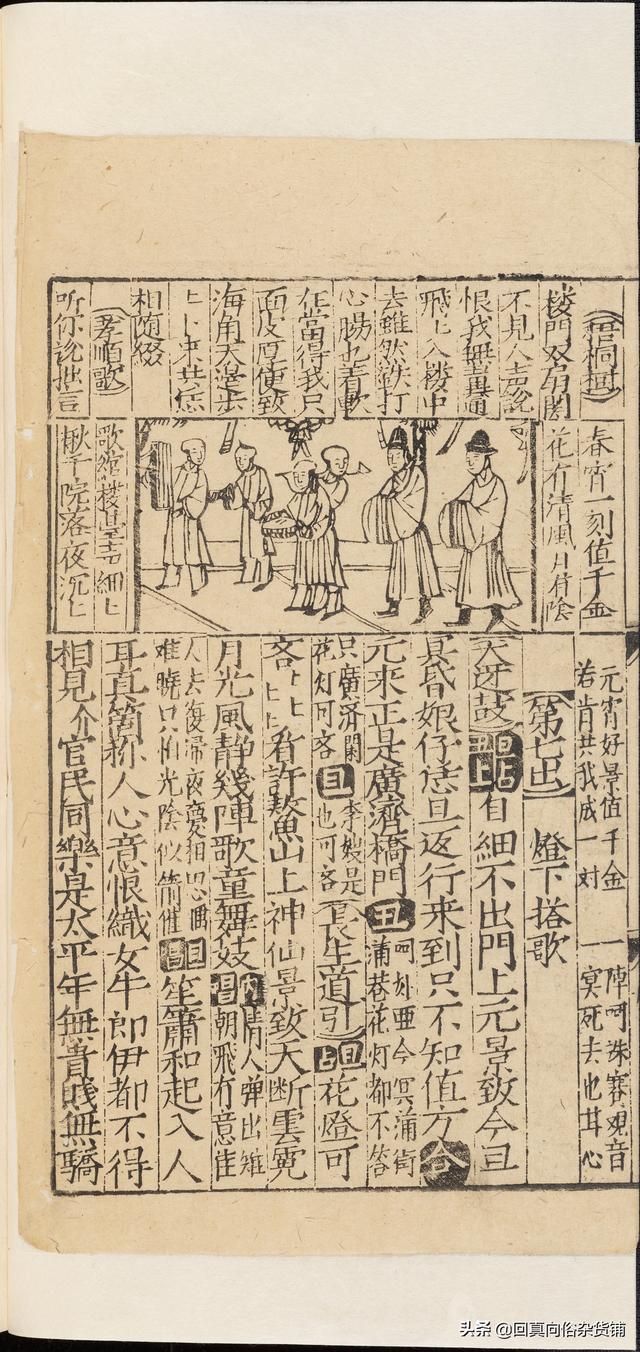 梧桐樹
楼門双
不見人声說
恨我無路通
飛上入楼中
去雖然跌打
心腸也着軟
任當得我只
面皮厚使致
海角天涯步
匕匕来共恁
相隨綴
孝順歌
听你說拙言
春宵一刻值千金
花有清風月有陰
歌管楼臺声細匕
楸千院落夜沉匕
元宵好景值千金 一陣呵洙賽觀音
若肯共我成一对 一冥死去也甘心
第七出 燈下搭歌
天迓鼓 旦占丑上 自細不出門上元景致今旦
真昏娘仔恁且返行来到只不知值方合
元来正是廣濟橋門 丑 今冥蒲街蒲巷花灯都不答
只廣済閣花灯可吝 旦 李嫂是也可吝 長生道引 旦上 花燈可
吝匕匕看許鰲山上神仙景致天断雲霓
月光風静幾陣歌童舞妓 內唱 情人弹出雉朝飛有意佳
人去復帰夜憂相思难曉只怕光陰似箭催 旦唱 笙簫和起入人
耳真箇称人心意恨織女牛郎伊都不得
相見介官民同樂是太平年無貴賎無驕
头条 @回真向俗杂货铺